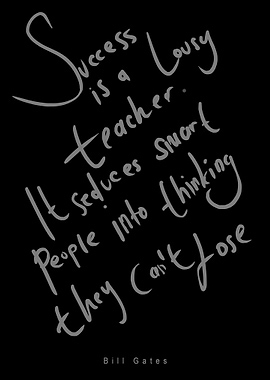 Success
is a lousy
teacher.
It seduces smart
people into thinking
they can't lose
Bill Gates